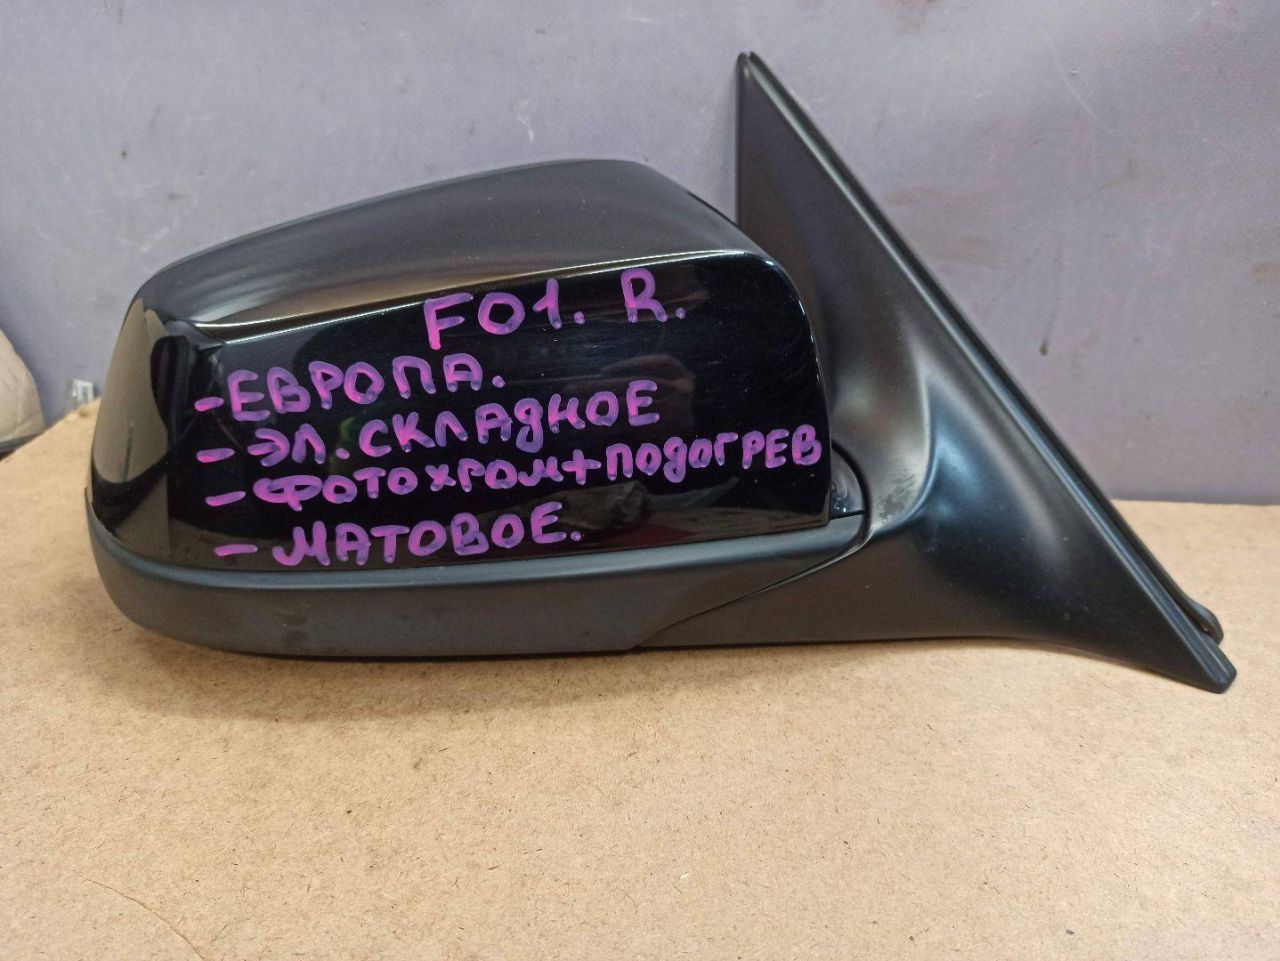 F01. R.
-ЕВРОПА.
- ЭЛ. СКЛАДНОЕ
- ФОТОХРОМ+ПОДОГРЕВ
- МАТОВОЕ.